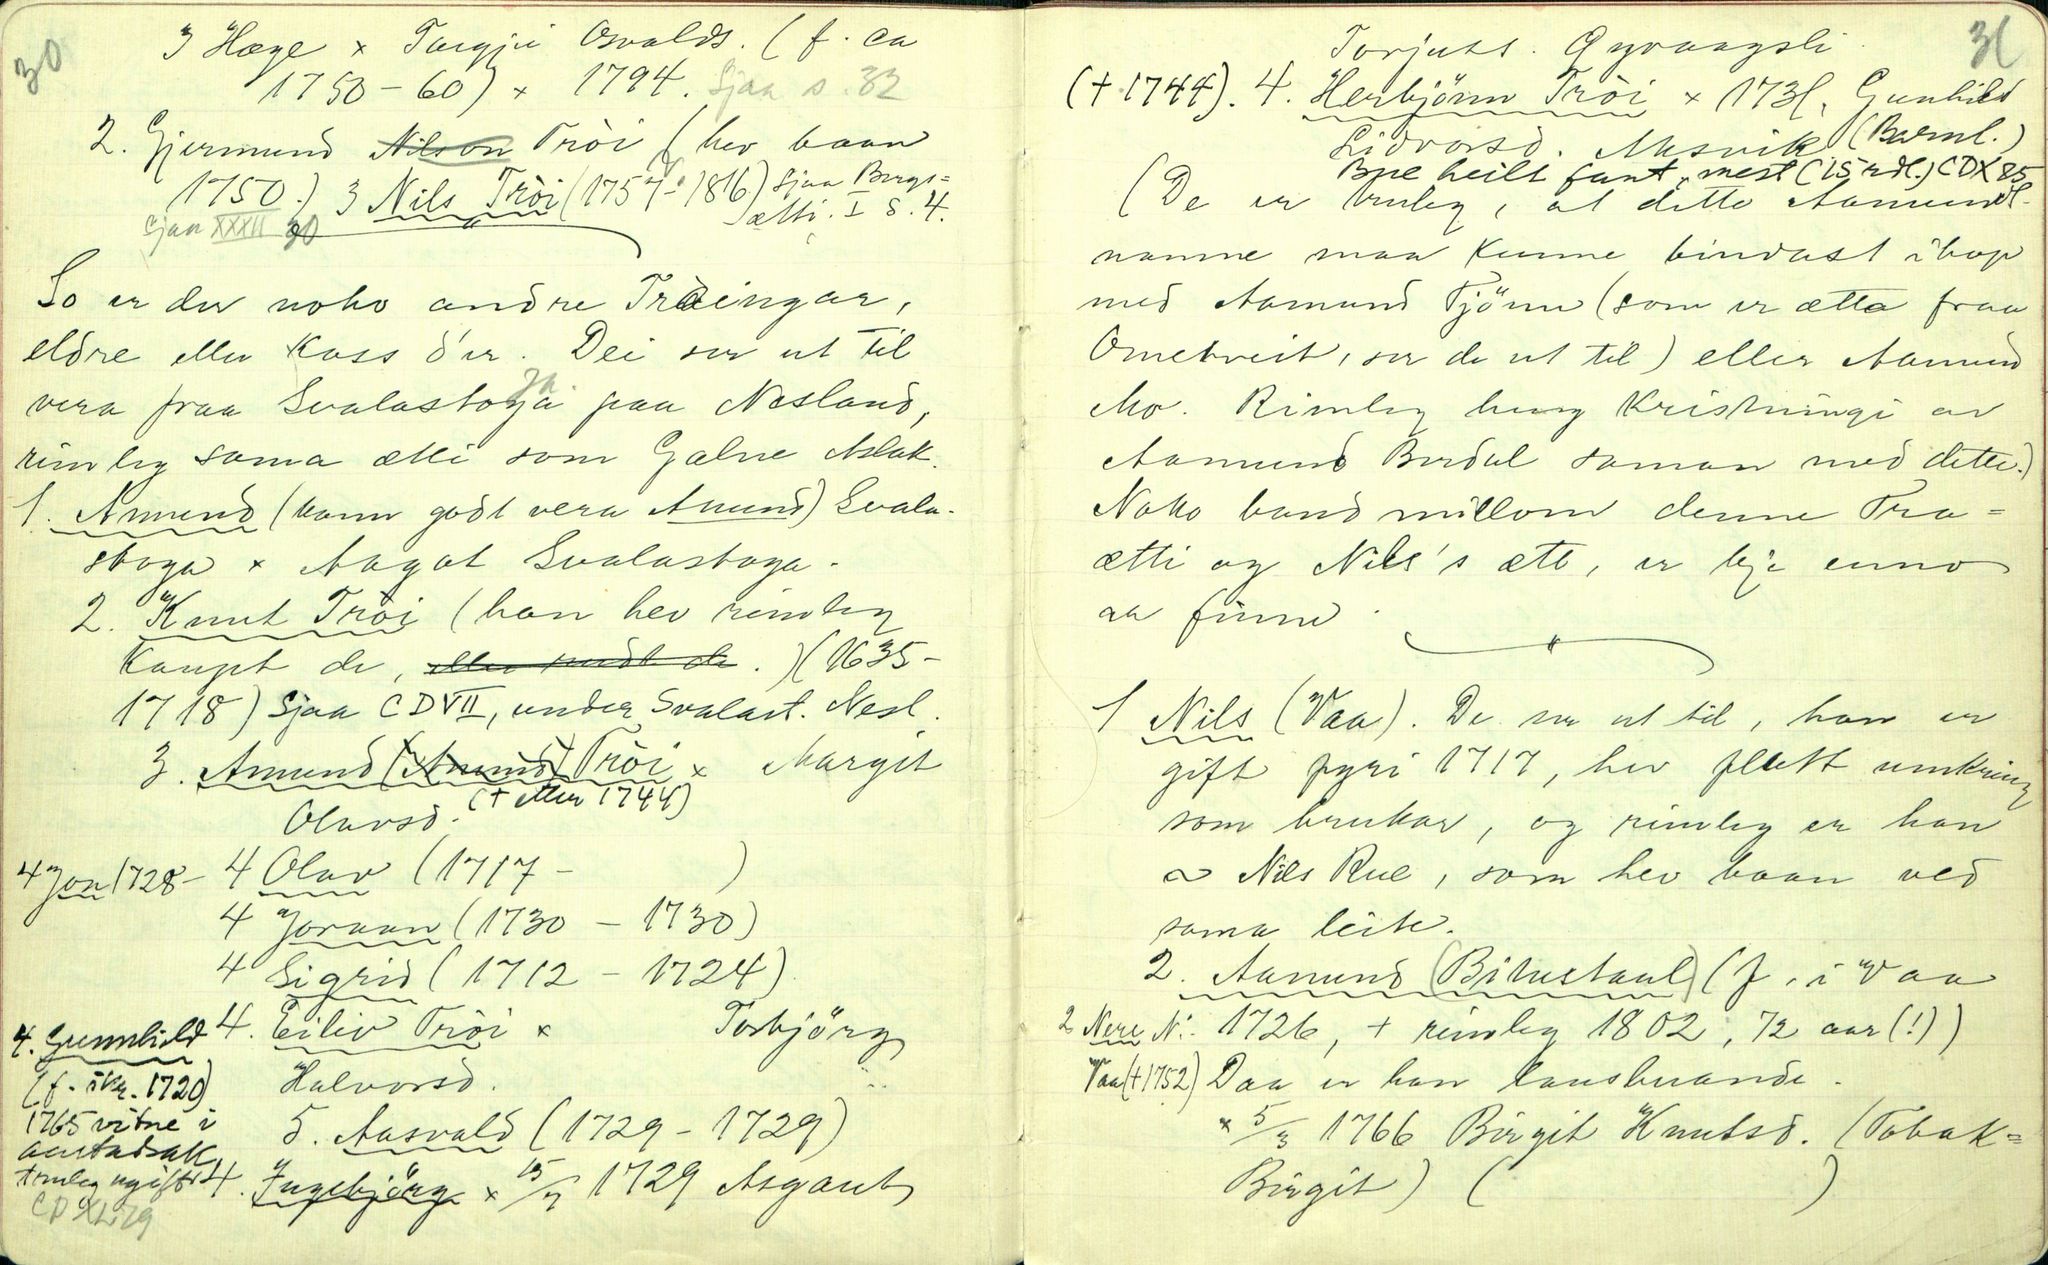 30
3 Hæge × Targjei Osvalds. (f. ca
1750-60) × 1794. Sjaa s. 32
2. Gjermund Nilson Tròi (hev baan
1750.) 3 Nils Tròi (1757-1816) Sjaa Bergs-
ætti. I S. 4.
Sjaa XXXII 30
So er der noko andre Tròingar,
eldre eller kass ó er. Dei ser ut til
vera fraa Svalastoga paa Nesland,
rimleg sama ætti som Galne Aslak.
1. Amund (kann godt vera Aamund) Svala-
stoga × Aagot Svalastoga.
2. Knut Tròi (han hev rimleg
kaupt de, eller de.) (1635-
1718) Sjaa CDVII, under Svalast. Nesl.
3. Amund (Amund) Tròi × Margit
Olavsd. (+ etter 1744)
4 Jon 1728-
4 Olav (1717- )
4 Joraan (1730-1730)
4 Sigrid (1712-1724)
4. Eiliv Tròi × Torbjörg
Halvorsd.
4. Gunnhild
(f. ikr. 1720)
1765 vitne i
austadsak
truleg ugift
CD XL 79
5. Aasvald (1729-1729)
4. Ingebjörg × 15/7 1729 Asgaut
31
Torjuss. Gyvaagsli
(+ 1744). 4. Herbjönn Tròi × 1731, Gunhild
Sidvorsd. Aasvik (Berul.)
Bue heilt fant, mest (15 rdl.) CDX 85
(De er truleg, at dette Aamund-
namne maa kunne bindast ihop
med Aamund Tjönn (som er ætta fraa
Ometveit, ser de ut til) eller Aamund
Mo. Rimleg heng Kristningi av
Aamund Burdal saman med dette.)
Noko band millom denne Tra-
ætti og Nils's ætt, er kje enno
aa finne.
1 Nils (Vaa). De ser ut til, han er
gift fyri 1717, hev flutt umkring
som brukar, og rimleg er han
~ Nils Rue, som hev baan ved
sama leite.
2. Aamund (Bitustaul) (f. i Vaa
1726, + rimleg 1802, 72 aar (!))
2 Nere N.
Vaa (+1752)
Daa er han lausbuande.
× 5/3 1766 Birgit Knutsd. (Tobak-
Birgit) ( )